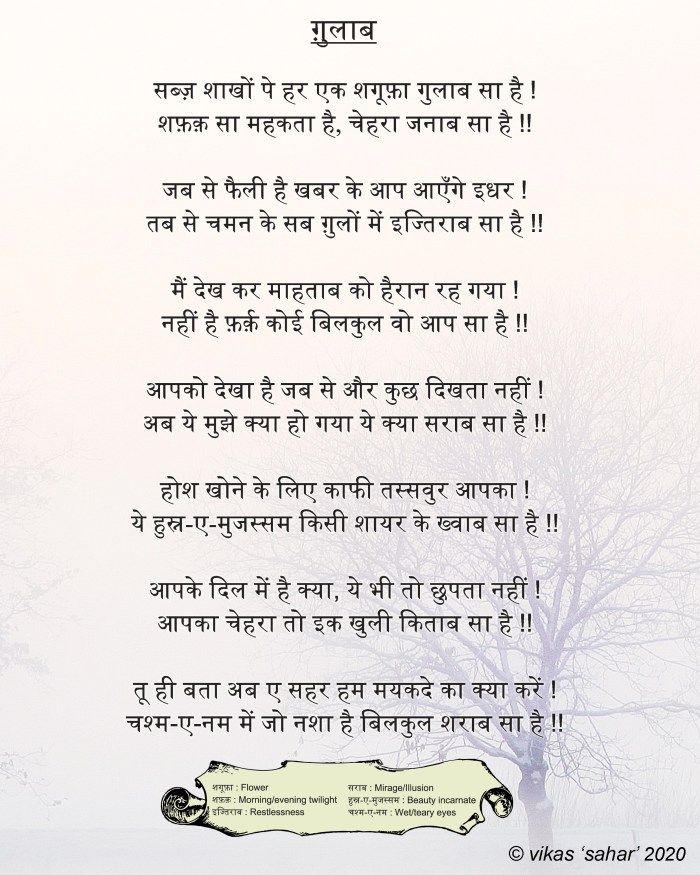 ग़ुलाब
सब्ज़ शाखों पे हर एक शगूफ़ा गुलाब सा है !
शफ़क़ सा महकता है, चेहरा जनाब सा है !!
जब से फैली है खबर के आप आएँगे इधर !
तब से चमन के सब ग़ुलों में इज्तिराब सा है !!
मैं देख कर माहताब को हैरान रह गया !
नहीं है फ़र्क़ कोई बिलकुल वो आप सा है !!
आपको देखा है जब से और कुछ दिखता नहीं !
अब ये मुझे क्या हो गया ये क्या सराब सा है !!
होश खोने के लिए काफी तस्सवुर आपका !
ये हुस्न-ए-मुजस्सम किसी शायर के ख्वाब सा है !!
आपके दिल में है क्या, ये भी तो छुपता नहीं !
आपका चेहरा तो इक खुली किताब सा है !!
तू ही बता अब ए सहर हम मयकदे का क्या करें !
चश्म-ए-नम में जो नशा है बिलकुल शराब सा है !!
शगूफ़ा : Flower
शफ़क़ : Morning/evening twilight
इज्तिराब : Restlessness
सराब : Mirage/Illusion
हुस्न-ए-मुजस्सम : Beauty incarnate
चश्म-ए-नम : Wet/teary eyes
© vikas ‘sahar’ 2020